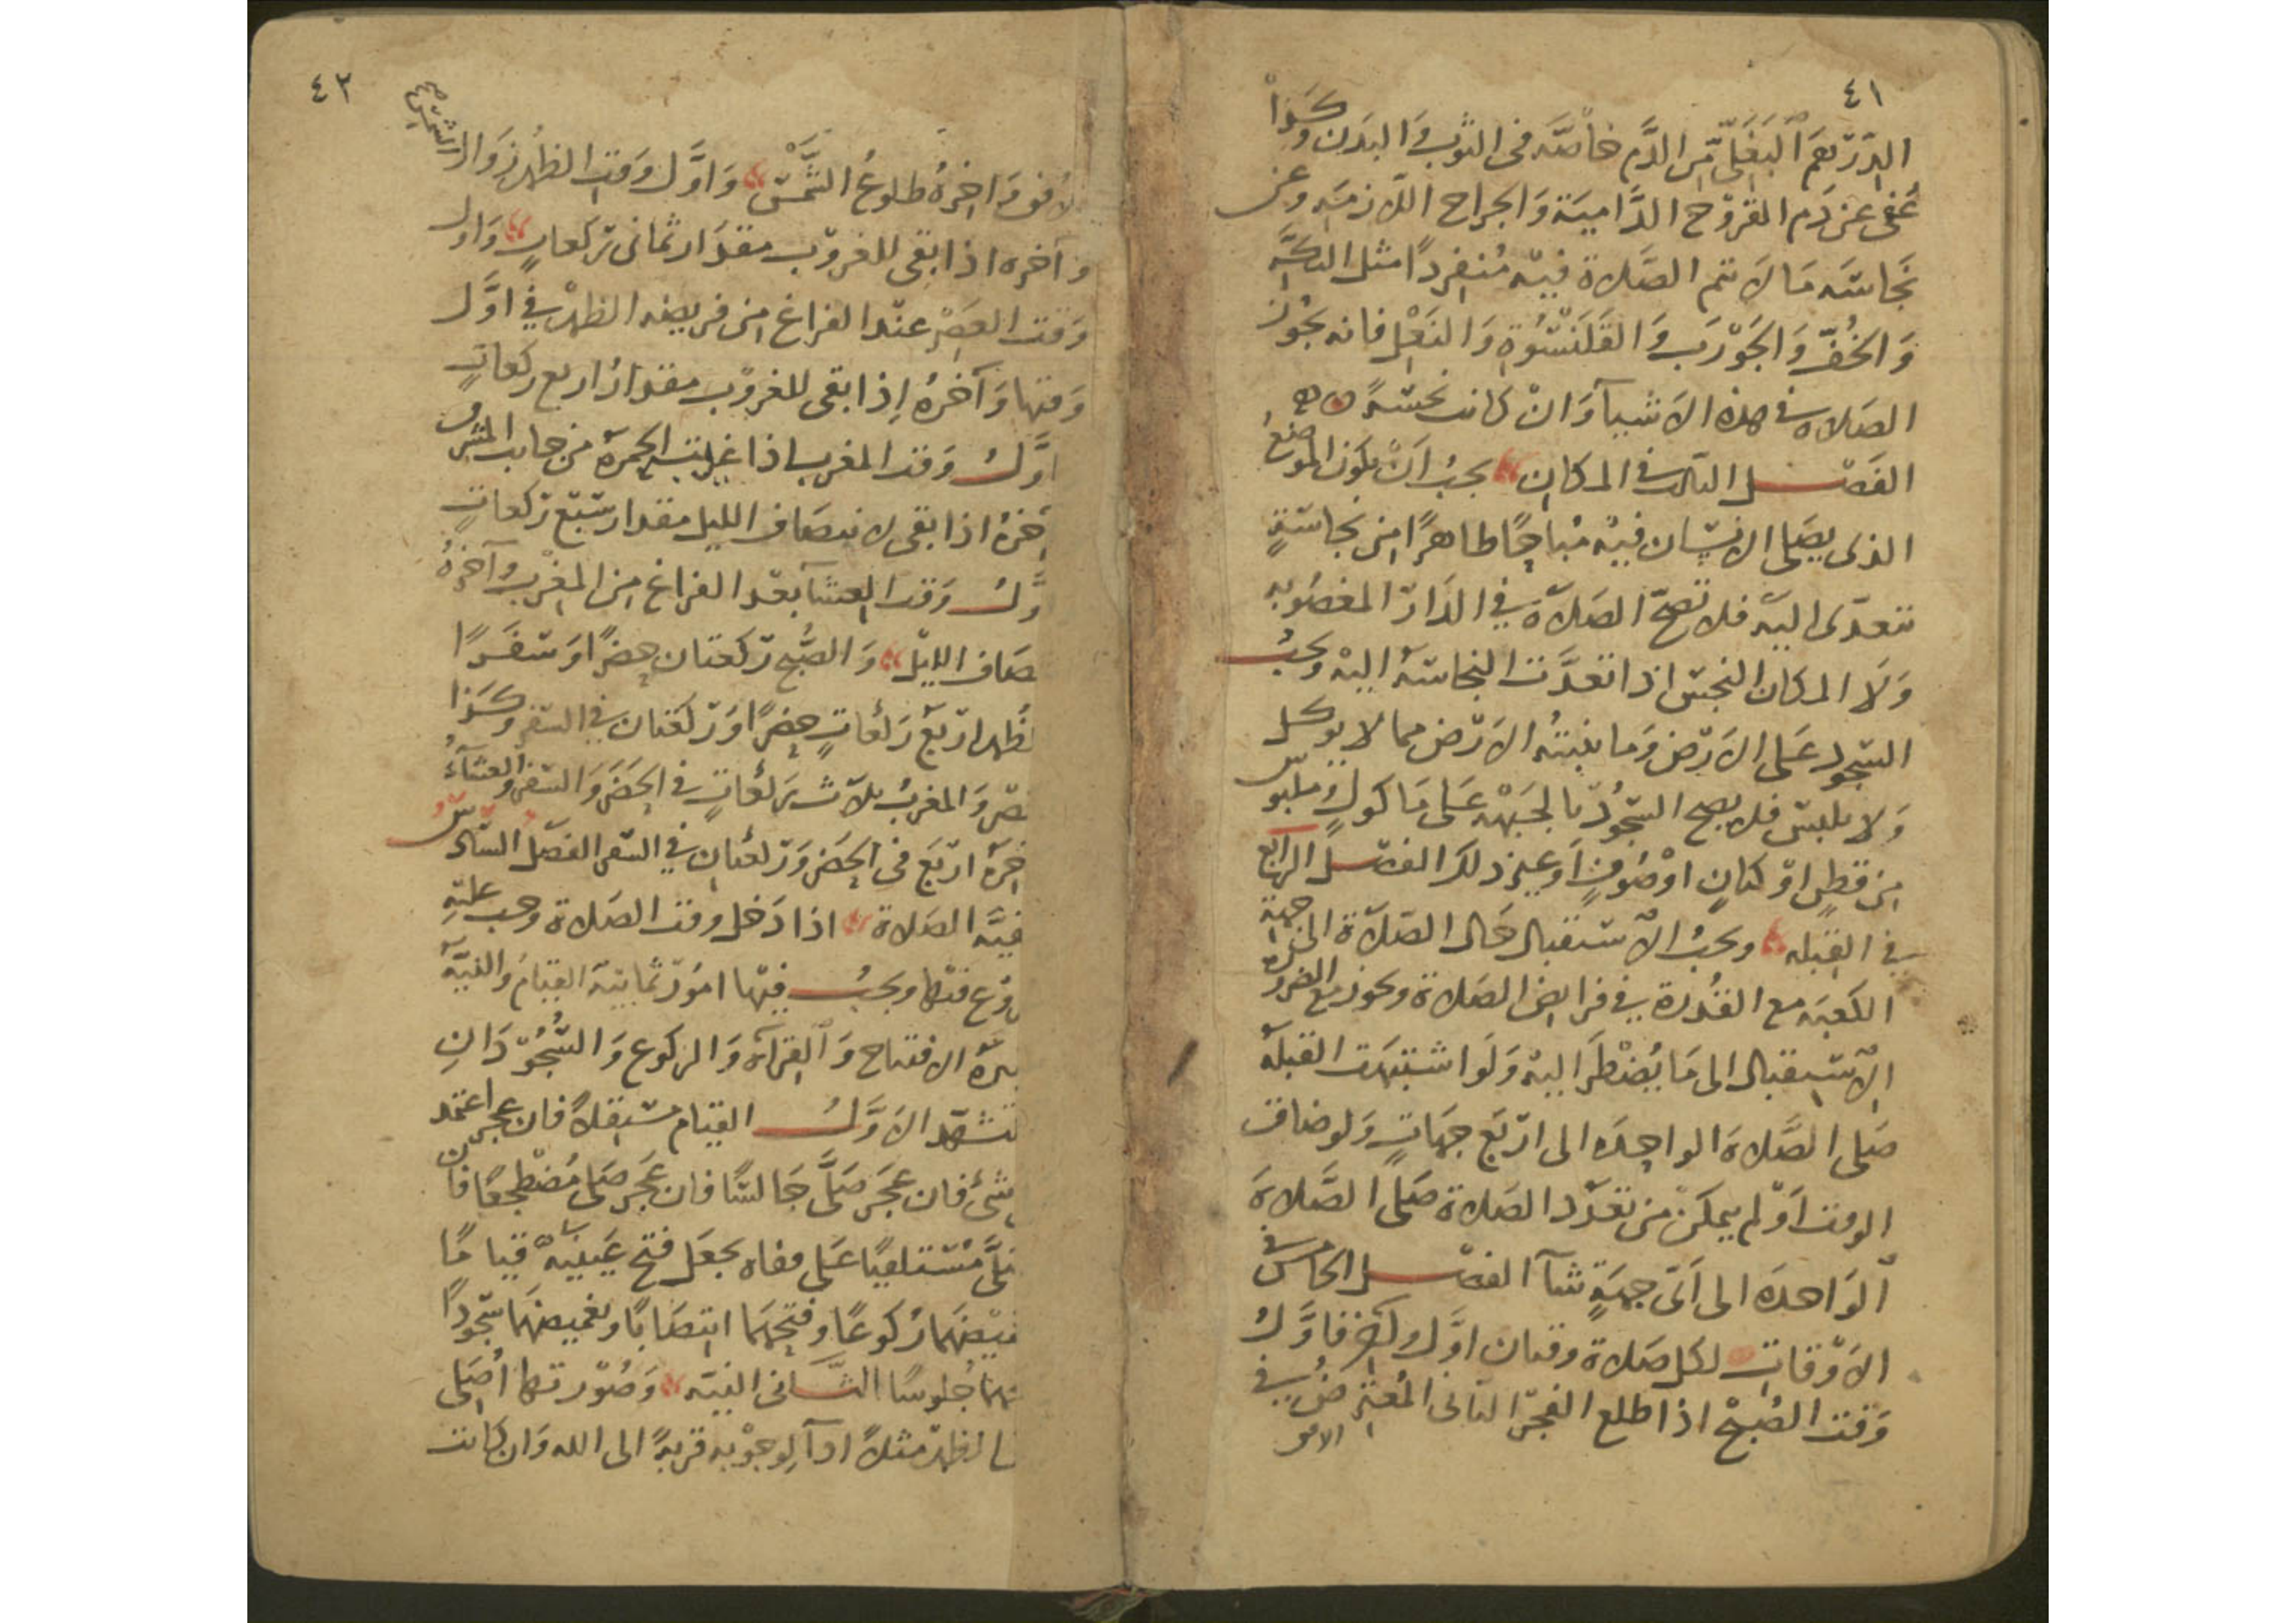 ٤١
الدرهم البغلي من الدم خاصة في الثوب والبدن وكذا
عفى عن دم القروح الدامية والجراح اللازمة وعن
نجاسة ما لا تتم الصلاة فيه منفردا مثل التكة
والخف والجورب والقلنسوة والنعل فانه يجوز
الصلاة في هذه الاشيآ وان كانت نجسة
الفصل الثالث في المكان يجب ان يكون الموضع
الذى يصلى الانسان فيه مباحا طاهرا من نجاسة
تتعدى اليه فلا تصح الصلاة في الدار المغصوبه
ولا المكان النجس اذا تعدت النجاسة اليه ويجب
السجود على الارض وما ينبته الارض مما لا يوكل
ولا يلبس فلا يصح السجود بالجبهه على ماكول وملبوس
من قطن او كتان او صوف او غير ذلك الفصل الرابع
في القبله ويجب الاستقبال حال الصلاة الى جهة
الكعبة مع القدرة في فرايض الصلاة ويجوز مع الضرورة
الاستقبال الى ما يضطر اليه ولو اشتبهت القبلة
صلى الصلاة الواحدة الى اربع جهات ولو ضاق
الوقت او لم يمكن من تعدد الصلاة صلى الصلاة
الواحدة الى اى جهة شآ الفصل الخامس في
الاوقات لكل صلاة وقتان اول وآخر فاول
وقت الصبح اذا طلع الفجر الثانى المعترض في
الافق
٤٢
الافق واخره طلوع الشمس واول وقت الظهر زوال الشمس
وآخره اذا بقى للغروب مقدار ثمانى ركعات واول
وقت العصر عند الفراغ من فريضه الظهر في اول
وقتها وآخره إذا بقى للغروب مقدار اربع ركعات
اول وقت المغرب اذا غربت الحمرة من جانب المشرق
آخره اذا بقى لانتصاف الليل مقدار سبع ركعات
وقت العشآ بعد الفراغ من المغرب وآخره
صاف الليل والصبح ركعتان حضرا وسفرا
ظهر اربع ركعات حضرا وركعتان في السفر وكذا
صر والمغرب ثلاث ركعات في الحضر والسفر والعشآء
خرة اربع في الحضر وركعتان في السفر الفصل السادس
فية الصلاة اذا دخل وقت الصلاة وجب عليه
ويجب فيها امور ثمانية القيام والنية
يرة الافتتاح والقرآة والركوع والسجود ان
تشهد الاول القيام مستقلا فان عجز اعتمد
شئ فان عجز صلى جالسا فان عجز صلى مضطجعا فان
مستلقيا على قفاه يجعل فتح عينيه قياما
ركوعا وفتحهما انتصابا وتغميضهما سجودا
جلوسا الثانى النية وصورتها اصلى
الظهر مثلا ادآ لوجوبه قربة الى الله وان كانت